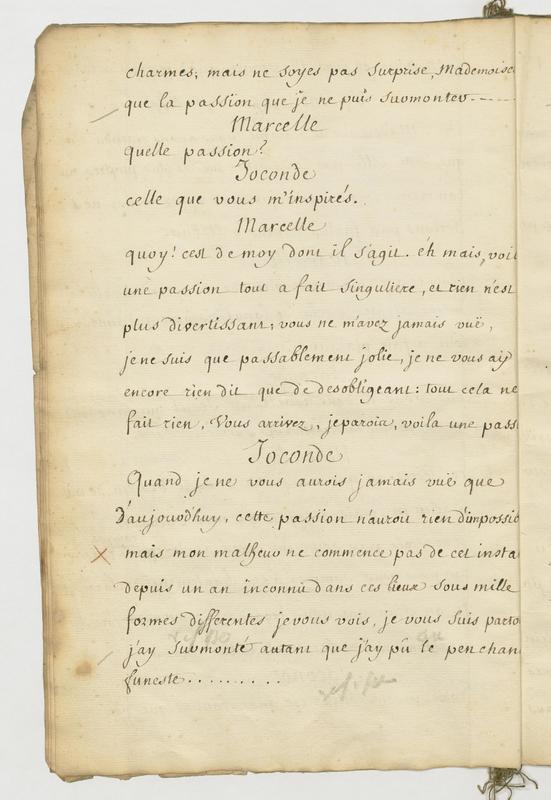 charmes; mais ne soyes pas surprise, Mademoise
que la passion que je ne puis surmonter.----
Marcelle
quelle passion?
Joconde
celle que vous m'inspirés.
Marcelle
quoy! cest de moy dont il s'agit. éh mais, voil
une passion tout a fait singuliere, et rien n'est
plus divertissant; vous ne m'avez jamais vuë,
je ne suis que passablement jolie, je ne vous aÿ
encore rien dit que de desobligeant: tout cela ne
fait rien, Vous arrivez, je parois, voila une pass
Joconde
Quand je ne vous aurois jamais vuë que
D'aujourd'huy, cette passion n'auroit rien d'impossib
mais mon malheur ne commence pas de cet insta
depuis un an inconnû dans ces lieux sous mille
formes differentes je vous vois, je vous suis parto
j'ay surmonté autant que j'ay pû le penchan
funeste..........